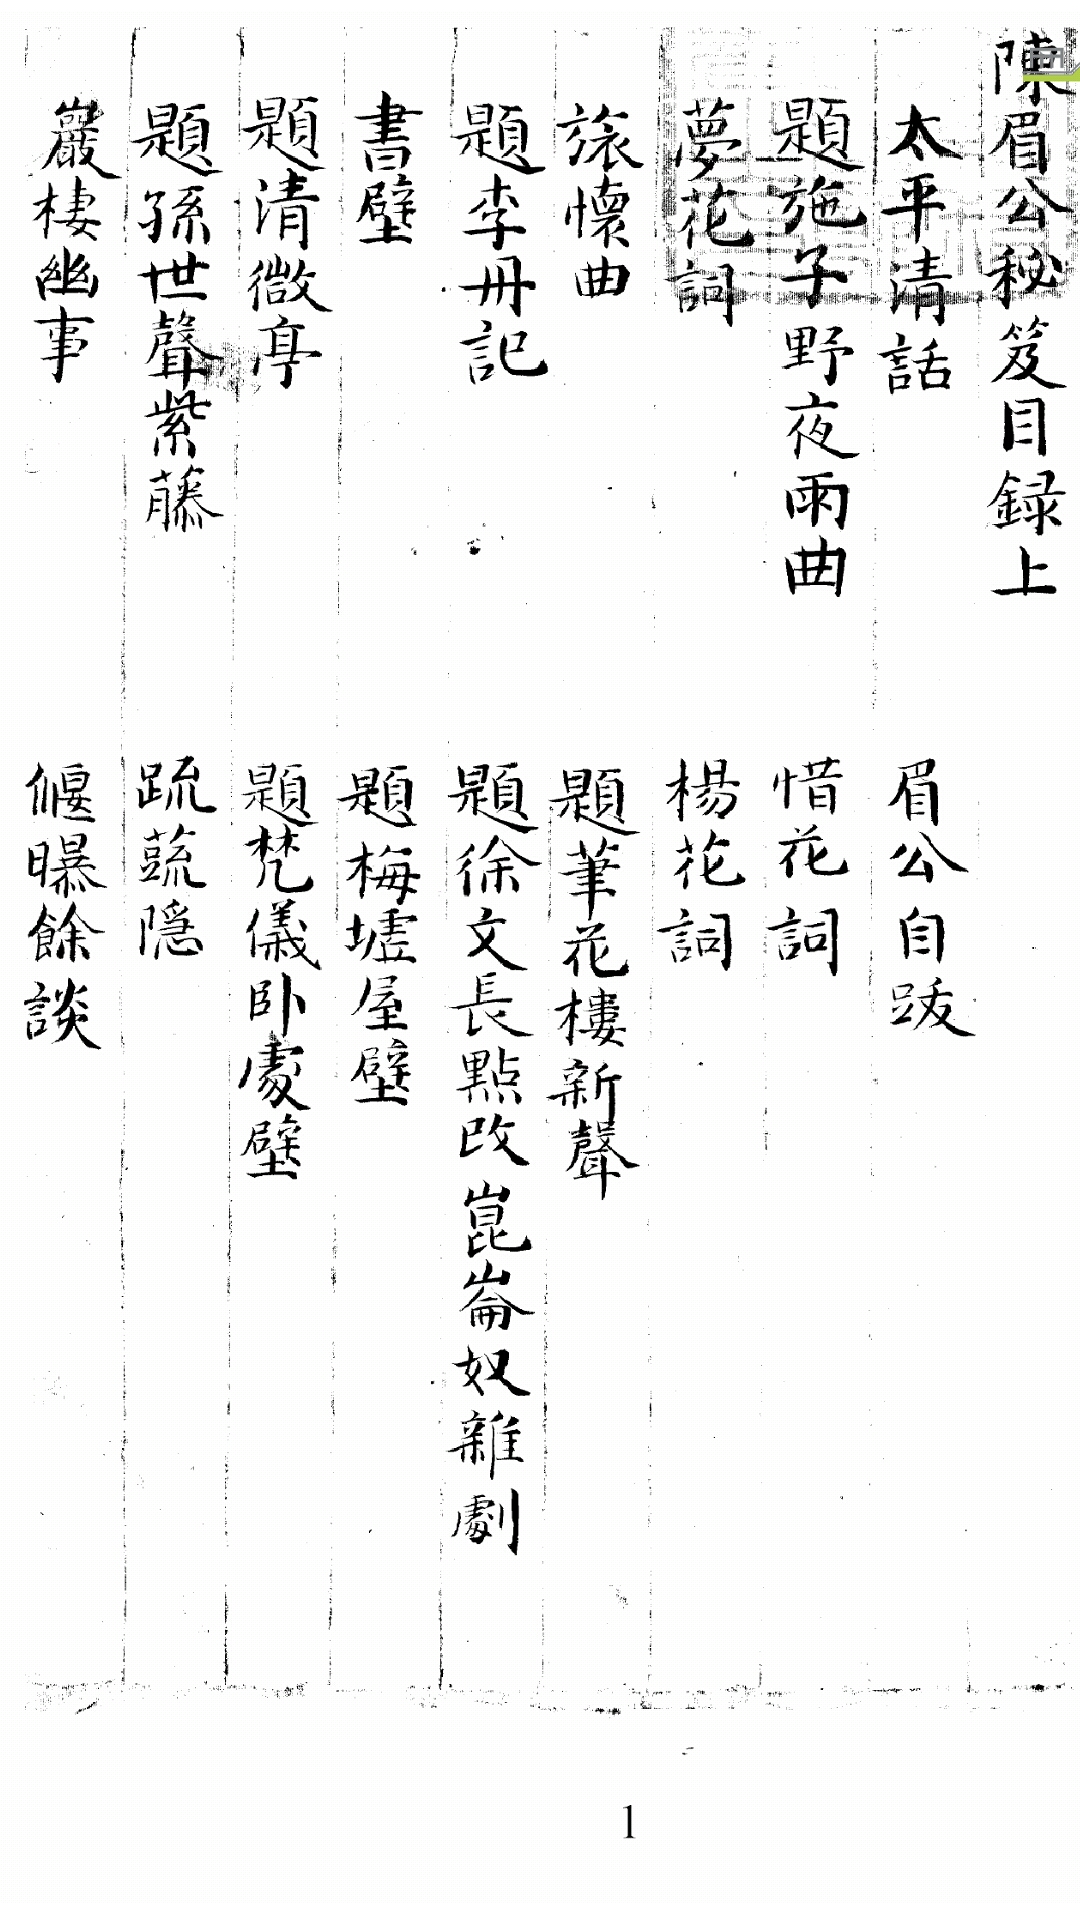 陳眉公秘笈目録上
太平清話
眉公自跋
題施子野夜雨曲
惜花詞
夢花詞
楊花詞
旅懷曲
題筆花樓新聲
題李丹記
題徐文長點改崑崙奴雜劇
書壁
題梅墟屋壁
題清微亭
題梵儀卧處壁
題孫世聲紫藤
疏蔬隠
巖棲幽事
偃曝餘談
1